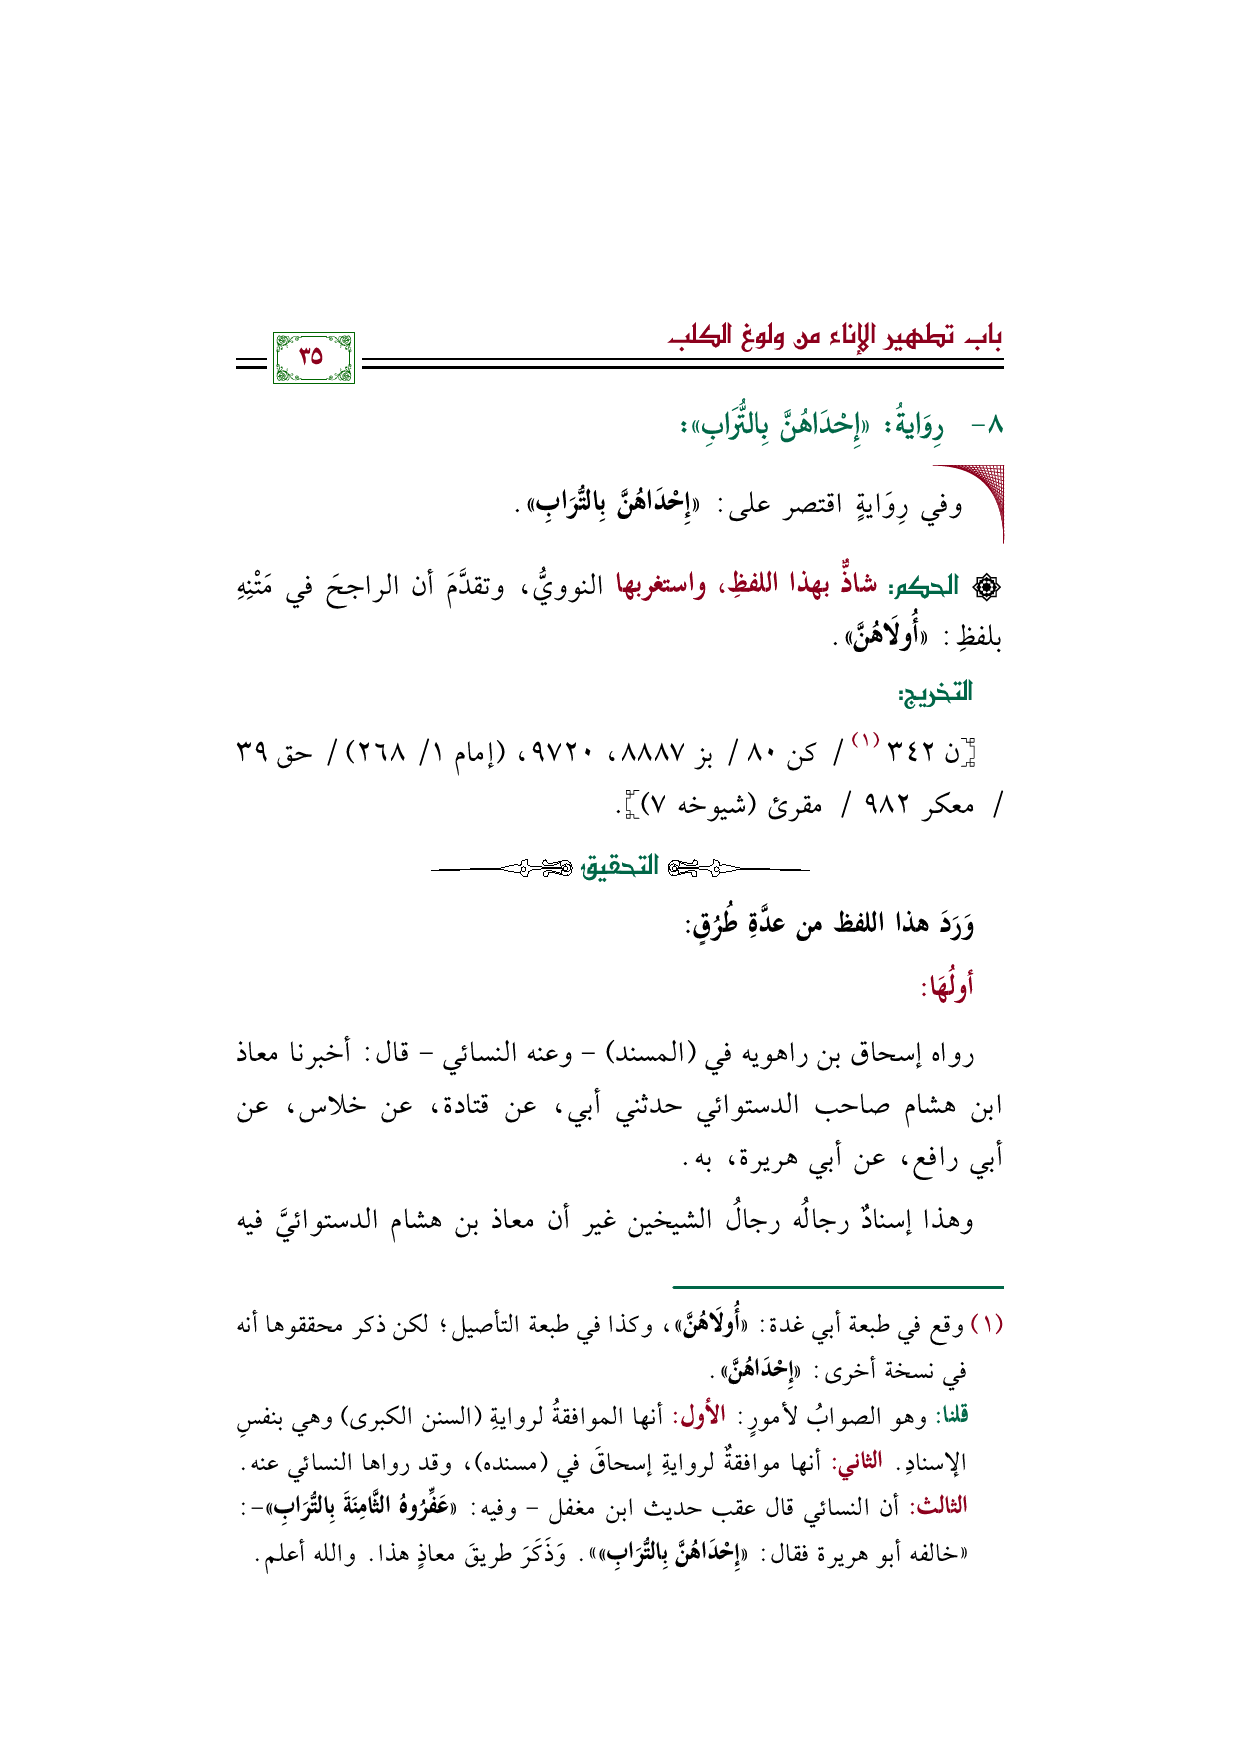 باب تطهير الإناء من ولوغ الكلب
٣٥
٨- رِوَايةُ: «إِحْدَاهُنَّ بِالتُّرَابِ»:
وفي رِوَايةٍ اقتصر على: «إِحْدَاهُنَّ بِالتُّرَابِ».
الحكم: شاذٌّ بهذا اللفظِ، واستغربها النوويُّ، وتقدَّمَ أن الراجحَ في مَتْنِهِ
بلفظِ: «أُولَاهُنَّ».
التخريج:
[ن ٣٤٢ (١) / كن ٨٠ / بز ٨٨٨٧، ٩٧٢٠، (إمام ١/ ٢٦٨) / حق ٣٩
/ معكر ٩٨٢ / مقرئ (شيوخه ٧)].
التحقيق
وَرَدَ هذا اللفظ من عدَّةِ طُرُقٍ:
أولُهَا:
رواه إسحاق بن راهويه في (المسند) – وعنه النسائي – قال: أخبرنا معاذ
ابن هشام صاحب الدستوائي حدثني أبي، عن قتادة، عن خلاس، عن
أبي رافع، عن أبي هريرة، به.
وهذا إسنادٌ رجالُه رجالُ الشيخين غير أن معاذ بن هشام الدستوائيَّ فيه
(١) وقع في طبعة أبي غدة: «أُولَاهُنَّ»، وكذا في طبعة التأصيل؛ لكن ذكر محققوها أنه
في نسخة أخرى: «إِحْدَاهُنَّ».
قلنا: وهو الصوابُ لأمورٍ: الأول: أنها الموافقةُ لروايةِ (السنن الكبرى) وهي بنفسِ
الإسنادِ. الثاني: أنها موافقةٌ لروايةِ إسحاقَ في (مسنده)، وقد رواها النسائي عنه.
الثالث: أن النسائي قال عقب حديث ابن مغفل – وفيه: «عَفِّرُوهُ الثَّامِنَةَ بِالتُّرَابِ»–:
«خالفه أبو هريرة فقال: «إِحْدَاهُنَّ بِالتُّرَابِ»». وَذَكَرَ طريقَ معاذٍ هذا. والله أعلم.